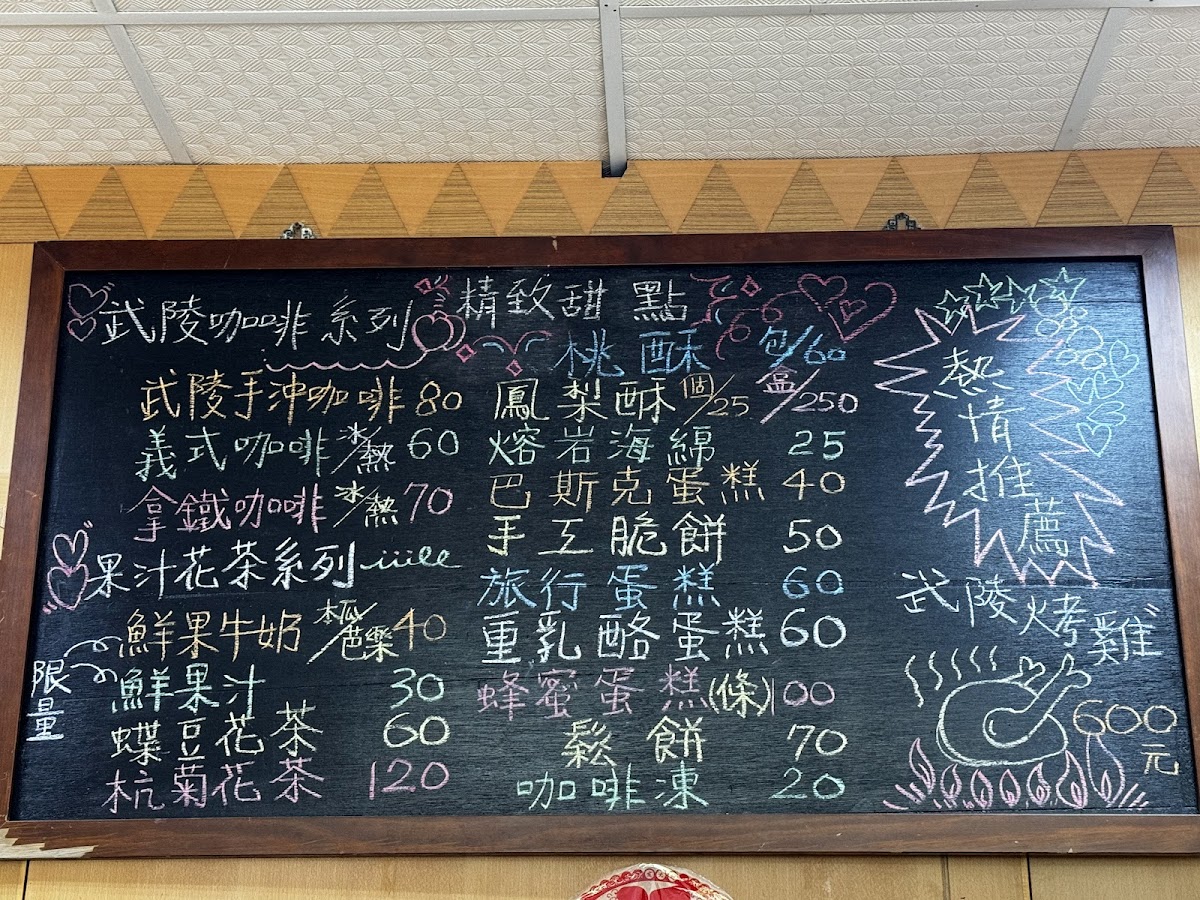 武陵咖啡系列
武陵手沖咖啡 80
義式咖啡 冰/熱 60
拿鐵咖啡 冰/熱 70
果汁花茶系列
鮮果牛奶 木瓜/芭樂 40
限量
鮮果汁 30
蝶豆花茶 60
杭菊花茶 120
精致甜點
桃酥 包/60
鳳梨酥 個/25 盒/250
熔岩海綿 25
巴斯克蛋糕 40
手工脆餅 50
旅行蛋糕 60
重乳酪蛋糕 60
蜂蜜蛋糕(條)100
鬆餅 70
咖啡凍 20
熱情推薦
武陵烤雞
600元